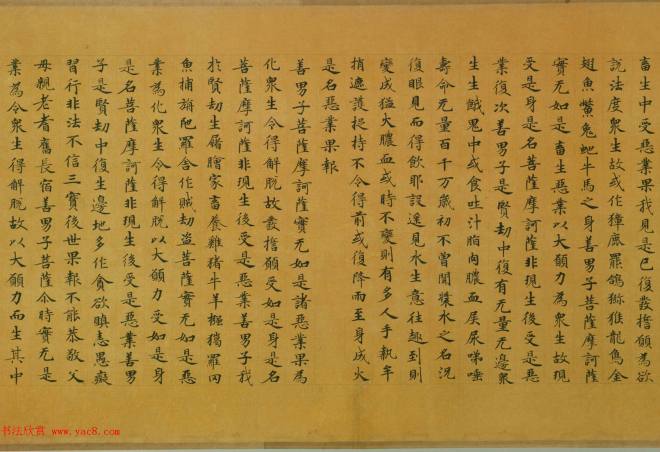 畜生中受惡業果我見是已復發擔願為欲
說法度衆生故或作獐鹿羆鴿獼猴龍鳥金
翅魚鱉兔虵牛馬之身善男子菩薩摩訶薩
實无如是畜生惡業以大願力為衆生故現
受是身是名菩薩摩訶薩非現生後受是惡
業復次善男子是賢劫中復有无量无邊衆
生生餓鬼中或食吐汁脂肉膿血屎尿唾
壽命无量百千万歲初不曾聞漿水之名況
復眼見而得飲耶設遥見水生意往趣到則
變成猛火膿血或時不變則有多人手執牟
捎遮護捉持不令得前或復降雨至身成火
是名惡業果報
善男子菩薩摩訶薩實无如是諸惡業果為
化衆生令得解脫故發擔願受如是身是名
菩薩摩訶薩非現生後受是惡業善男子我
於賢劫生膾家畜養雞猪牛羊罝羅网
魚捕旃陁羅舍作賊劫盜菩薩實无如是惡
業為化衆生令得解脫以大願力受如是身
是名菩薩摩訶薩非現生後受是惡業善男
子是賢劫中復生邊地多作貪欲瞋恚愚癡
習行非法不信三寶後世果報不能恭敬父
母親老耆舊長宿善男子菩薩尒時實无是
業為令衆生得解脫故以大願力而生其中
书法欣赏 www.yac8.com